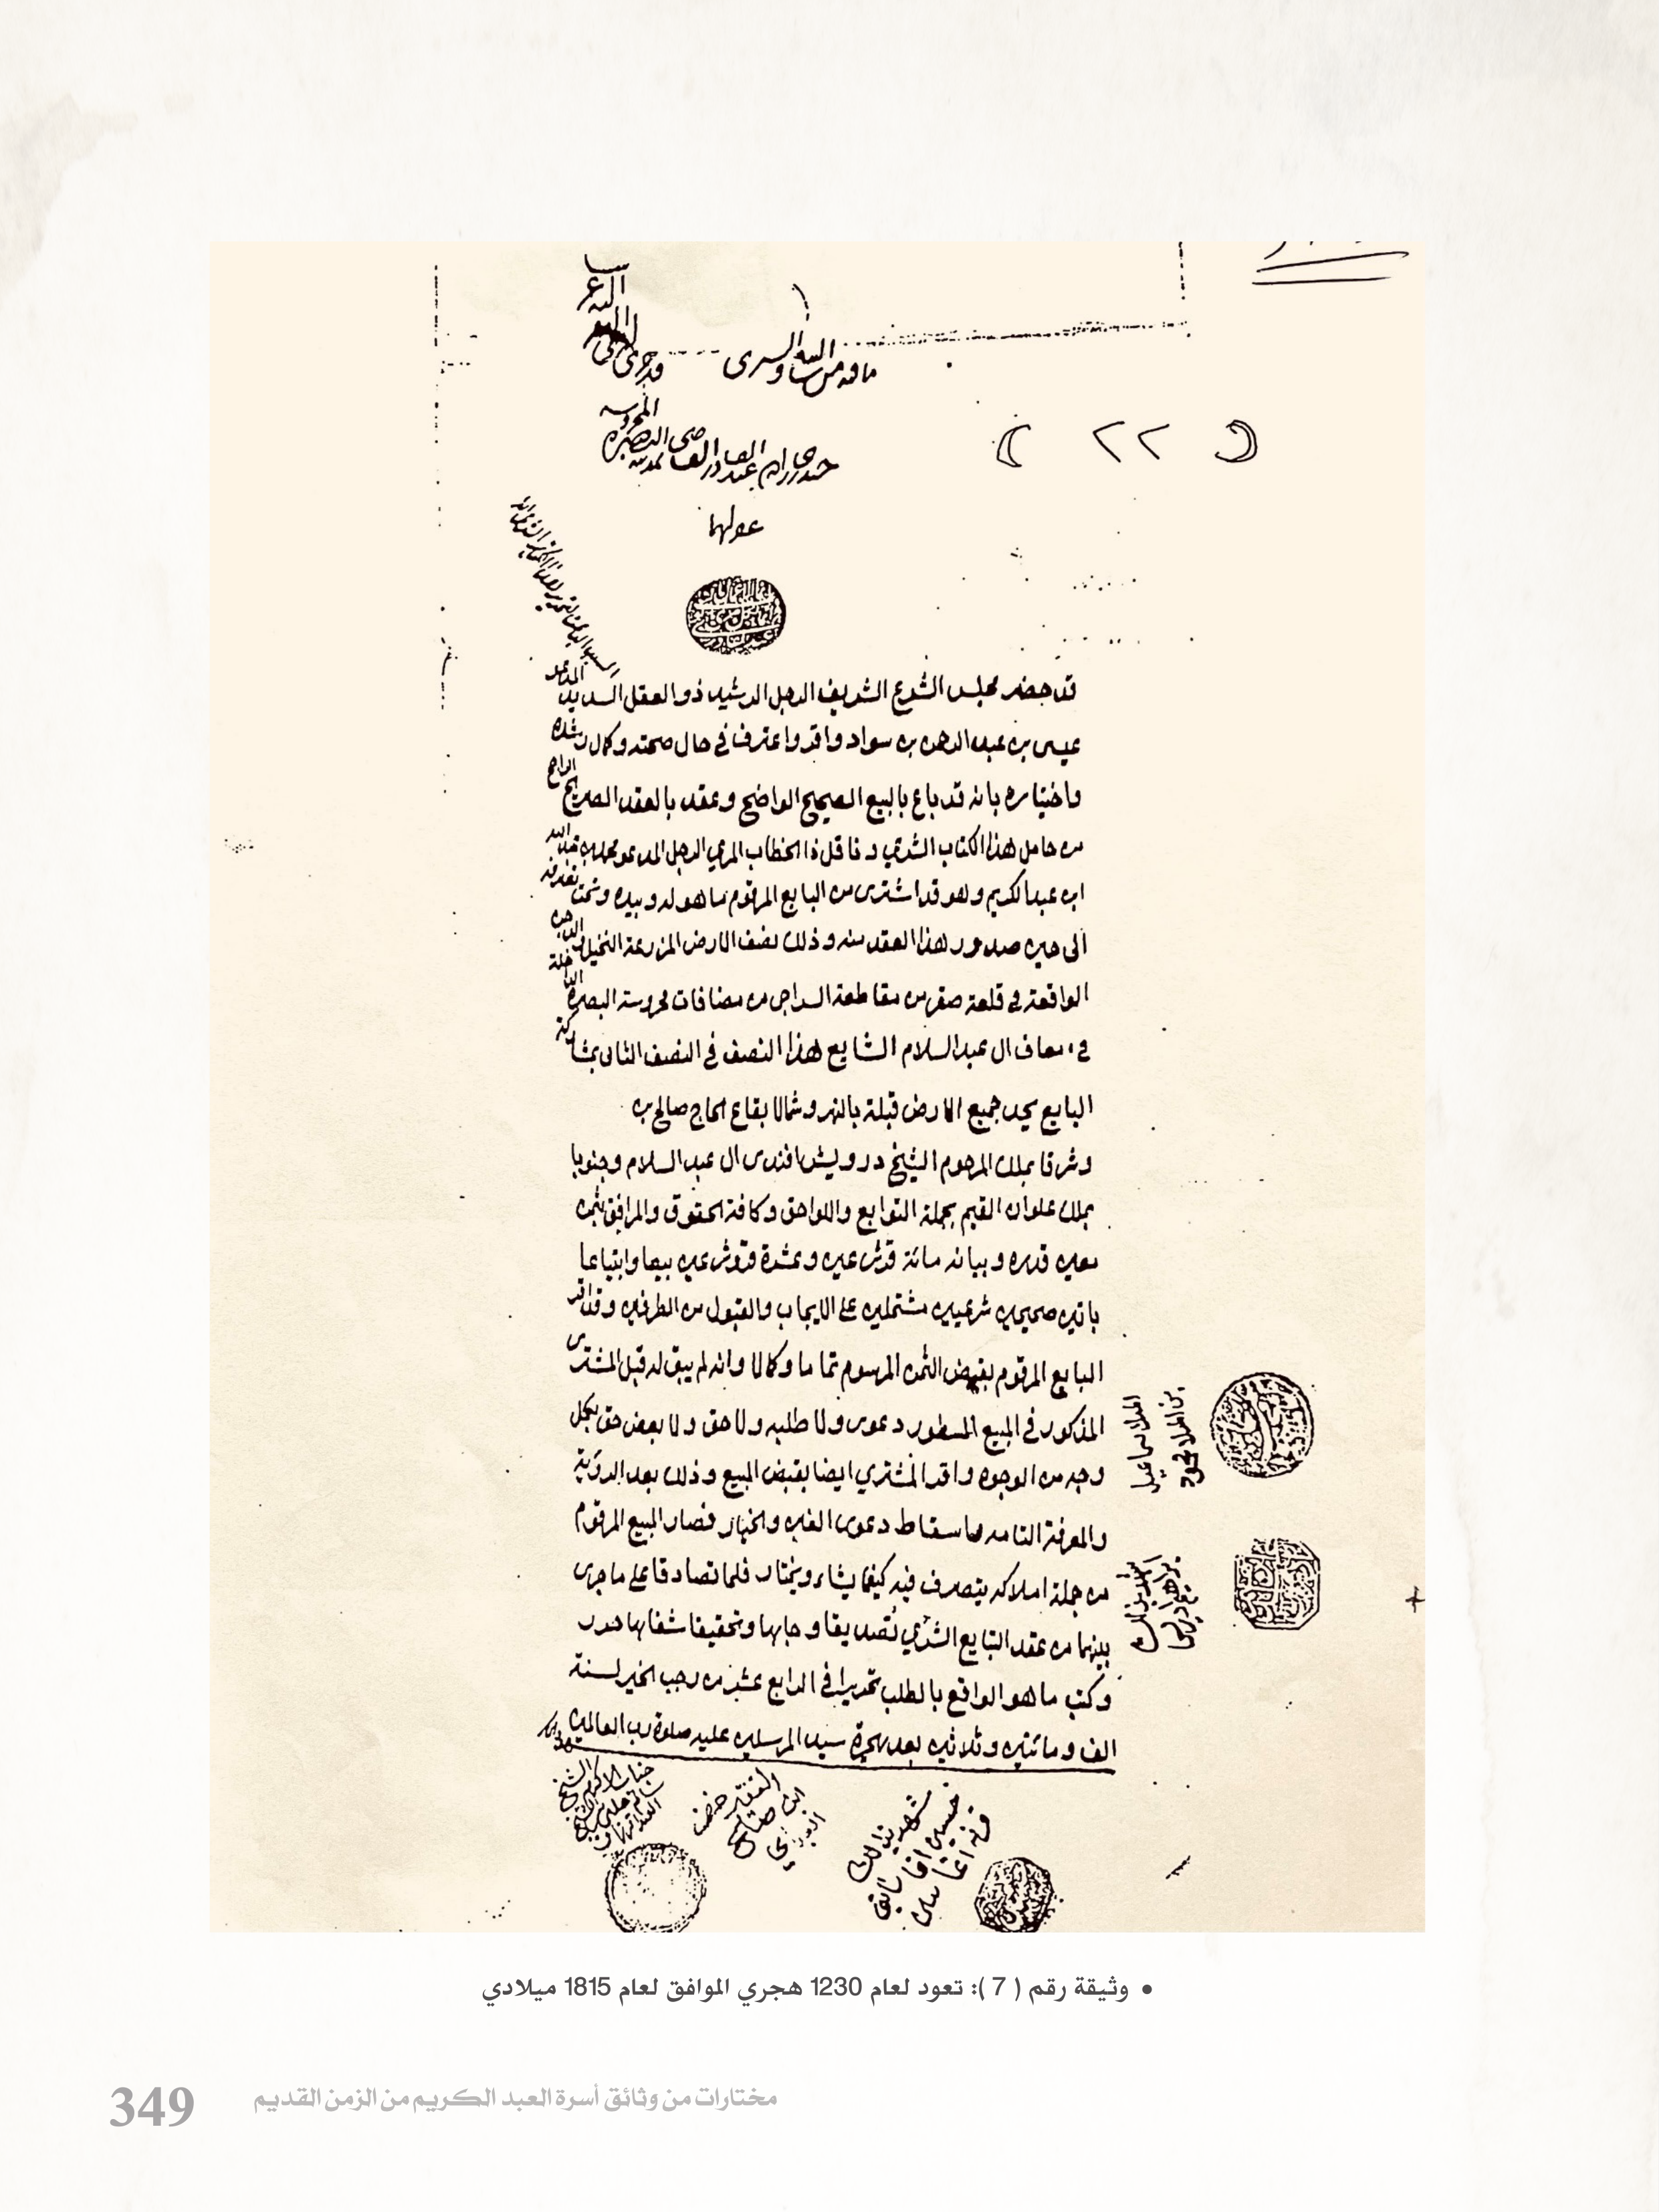 ( ٢٢ )
المحروسه
عبد القادر القاضي
عفي عنهما
قد حضر مجلس الشرع الشريف الرجل الرشيد ذو العقل السديد المدعو
عيسى بن عبد الرحمن بن سواد واقر واعترف في حال صحته وكمال رشده
واختياره بانه قد باع بالبيع الصحيح الواضح وعقد بالعقد الصريح الراجح
من حامل هذا الكتاب الشرعي وناقل ذا الخطاب المرعي الرجل المدعو محمد بن عبد الله
ابن عبد الكريم وهو قد اشترى من البايع المرقوم ما هو له وبيده وتحت تصرفه
الى حين صدور هذا العقد منه وذلك نصف الارض المزرعة النخيل
الواقعة في قلعة صقر من مقاطعة السراجي من مضافات محروسة البصرة الداخلة
في ال عبد السلام الشايع هذا النصف في النصف الثاني بمشاركة
البايع يحد جميع الارض قبلة بالنهر وشمالا بقاع الحاج صالح بن
وشرقا بملك المرحوم الشيخ درويش افندي ال عبد السلام وجنوبا
بملك علوان القيم بجملة التوابع واللواحق وكافة الحقوق والمرافق بثمن
معين قدره وبيانه مائة قرش عين وعشرة قروش عين بيعا وابتياعا
باتين صحيحين شرعيين مشتملين على الايجاب والقبول من الطرفين وقد اقر
البايع المرقوم بقبض الثمن المرسوم تماما وكمالا وانه لم يبق له قبل المشتري
المذكور في المبيع المسطور دعوى ولا طلبه ولا حق ولا بعض حق بكل
وجه من الوجوه واقر المشتري ايضا بقبض المبيع وذلك بعد الرؤية
والمعرفة التامه واسقاط دعوى الغبن والخيار فصار المبيع المرقوم
من جملة املاكه يتصرف فيه كيفما يشاء ويختار فلما تصادقا على ما جرى
بينهما من عقد التبايع الشرعي تصديقا وجاها وتحقيقا شفاها حرر
وكتب ما هو الواقع بالطلب تحريرا في الرابع عشر من رجب الخير لسنة
الف ومائتين وثلاثين بعد هجرة سيد المرسلين عليه صلوة رب العالمين
الملا اسماعيل
بن الملا محمود
شهد بذلك
شهد بذلك
حسين اغا
الفقير خضر
ابن صالح
جناب الاكرم الشيخ
• وثيقة رقم ( 7 ): تعود لعام 1230 هجري الموافق لعام 1815 ميلادي
مختارات من وثائق أسرة العبد الكريم من الزمن القديم
349